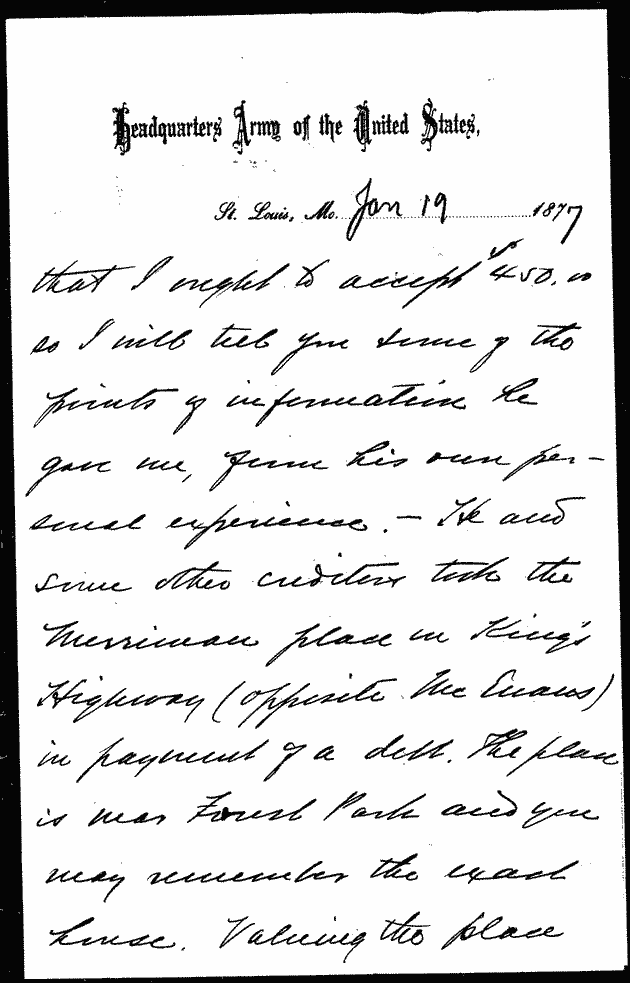 Headquarters Army of the United States,
St. Louis, Mo. Jan 19 1877
that I ought to accept $450.00
so I will tell you some of the
points of information he
gave me, from his own per-
sonal experience. - He and
some other creditors took the
Merriman place on King's
Highway (opposite McEvans)
in payment of a debt. The place
is near Forest Park and you
may remember the exact
house. Valuing the place